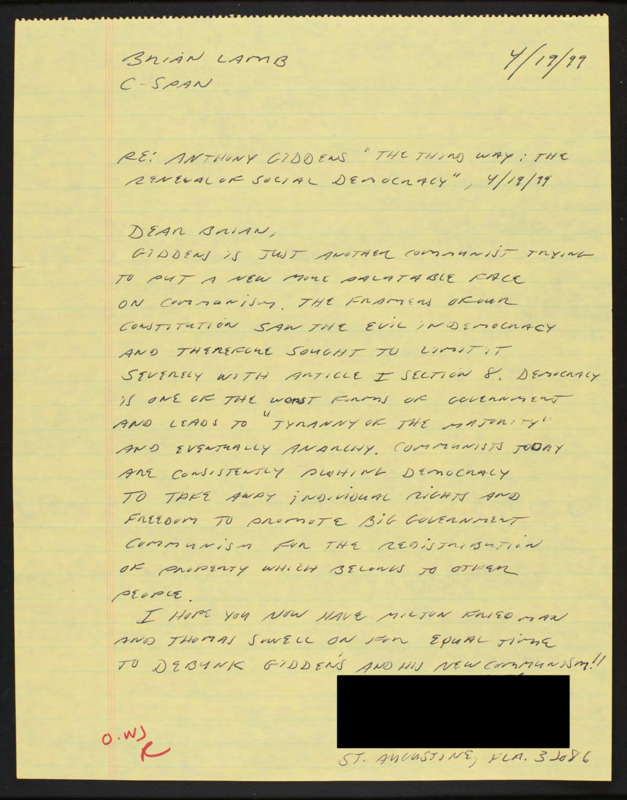 BRIAN LAMB 4/19/99
C-SPAN
RE: ANTHONY GIDDENS "THE THIRD WAY: THE
RENEWAL OF SOCIAL DEMOCRACY", 4/19/99
DEAR BRIAN,
GIDDENS IS JUST ANOTHER COMMUNIST TRYING
TO PUT A NEW MORE PALATABLE FACE
ON COMMUNISM. THE FRAMERS OF OUR
CONSTITUTION SAW THE EVIL IN DEMOCRACY
AND THEREFORE SOUGHT TO LIMIT IT
SEVERELY WITH ARTICLE I SECTION 8. DEMOCRACY
IS ONE OF THE WORST FORMS OF GOVERNMENT
AND LEADS TO "TYRANNY OF THE MAJORITY"
AND EVENTUALLY ANARCHY. COMMUNISTS TODAY
ARE CONSISTENTLY PUSHING DEMOCRACY
TO TAKE AWAY INDIVIDUAL RIGHTS AND
FREEDOM TO PROMOTE BIG GOVERNMENT
COMMUNISM FOR THE REDISTRIBUTION
OF PROPERTY WHICH BELONGS TO OTHER
PEOPLE.
I HOPE YOU NOW HAVE MILTON FRIEDMAN
AND THOMAS SOWELL ON FOR EQUAL TIME
TO DEBUNK GIDDENS AND HIS NEW COMMUNISM!!
ST. AUGUSTINE, FLA. 32086